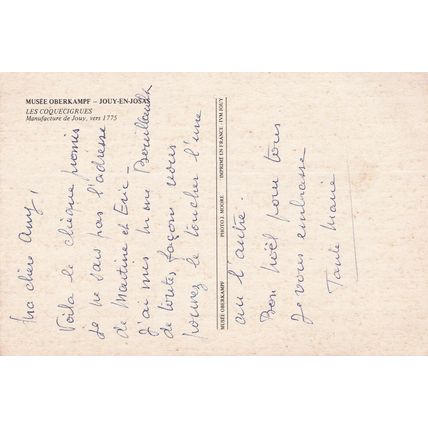 MUSÉE OBERKAMPF – JOUY-EN-JOSAS
LES COQUECIGRUES
Manufacture de Jouy, vers 1775
Ma chère Amy,
Voilà le chèque promis
je ne sais pas l'adresse
de Martine et Eric –
J'ai mis m ou
de toutes façons vous
pouvez le toucher l'une
ou l'autre.
Bon Noël pour tous
Je vous embrasse
Tante Marie
MUSÉE OBERKAMPF PHOTO J. MOORE IMPRIMÉ EN FRANCE - IVM JOUY